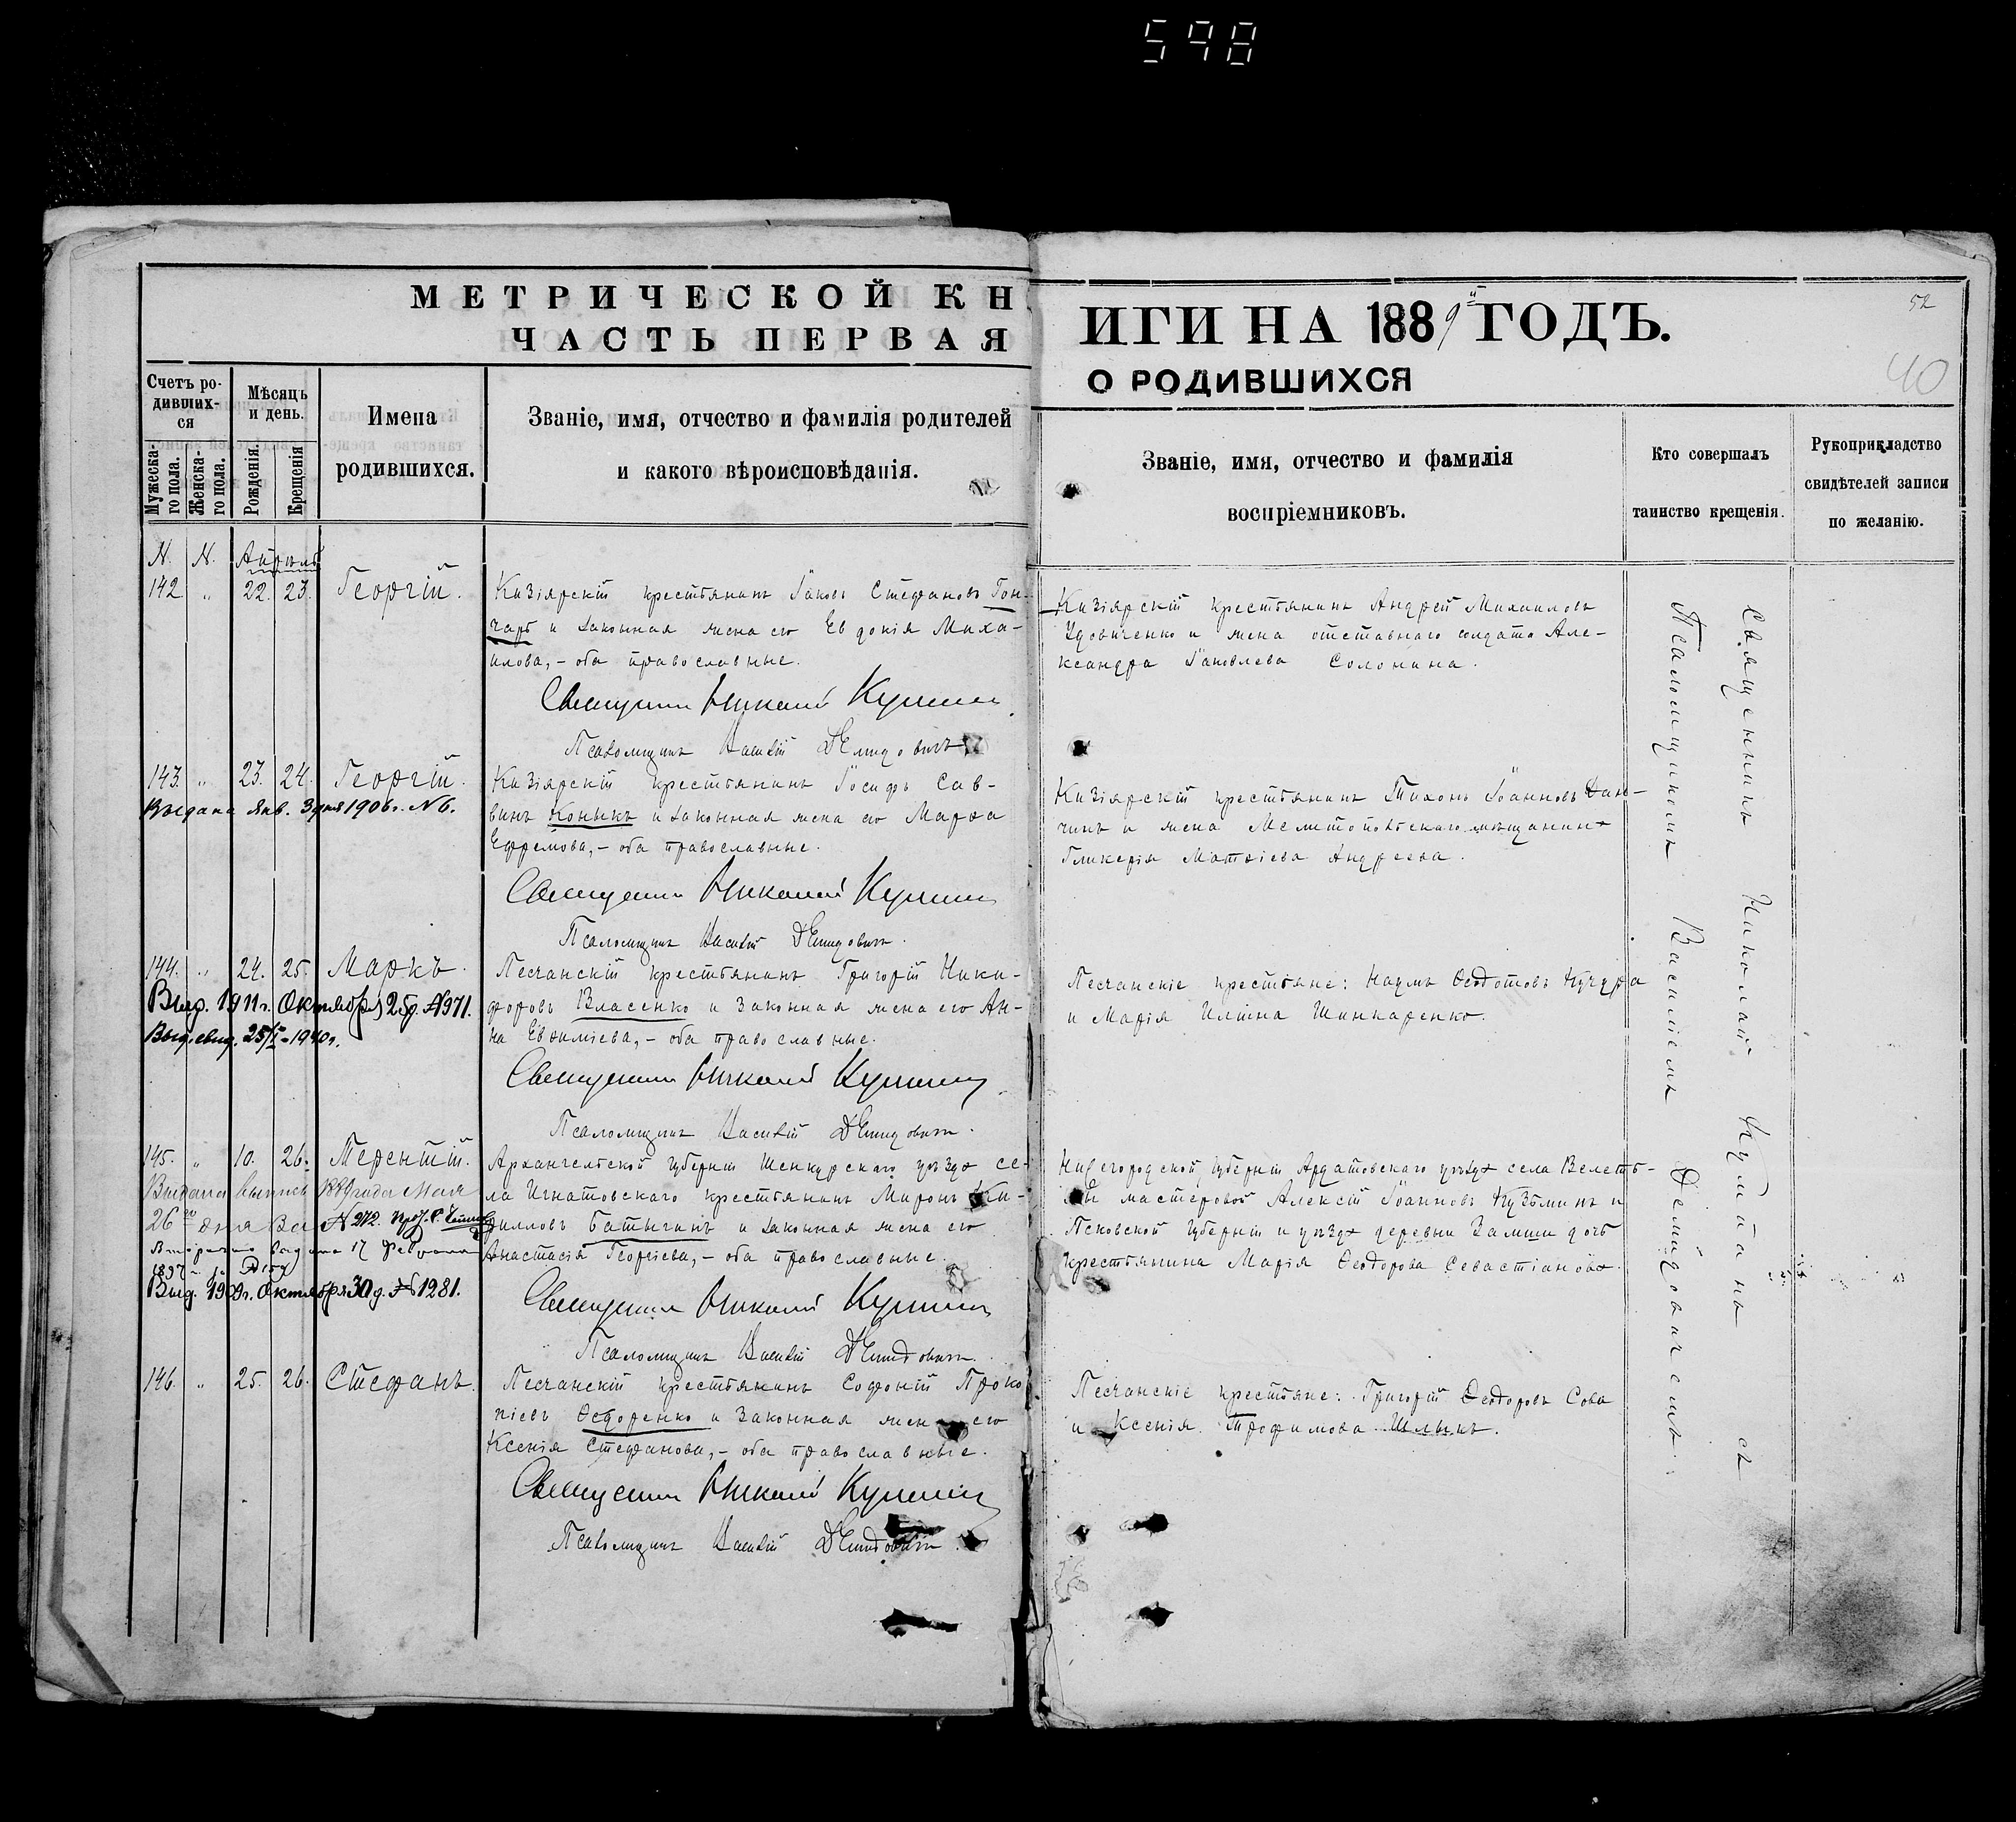 598
МЕТРИЧЕСКОЙ КН
ЧАСТЬ ПЕРВАЯ
Счетъ ро-
дивших-
ся
Мѣсяцъ
и день.
Имена
родившихся.
Званіе, имя, отчество и фамилія родителей
и какого вѣроисповѣданія.
Мужеска-
го пола.
Женска-
го пола.
Рожденія.
Крещенія
N. N. Апрѣль
142. „ 22. 23. Георгій.
Кизіярскій крестьянинъ Іаковъ Стефановъ Гон-
чаръ и законная жена его Евдокія Миха-
илова, – оба православные.
Священникъ Николай
Псаломщикъ Василій Демидовичъ
143. „ 23. 24. Георгій.
Выдана Янв. 3 дня 1906 г. N 6.
Кизіярскій крестьянинъ Іосифъ Сав-
винъ Коныкъ и законная жена его Марѳа
Ефремова, – оба православные.
Священникъ Николай
Псаломщикъ Василій Демидовичъ.
144. „ 24. 25. Маркъ.
Выд. 1911 г. Октября 25 д. N 971.
Выд. свид. 25/X - 1940 г.
Песчанскій крестьянинъ Григорій Ники-
форовъ Власенко и законная жена его Ан-
на Евѳиміева, – оба православные.
Священникъ Николай
Псаломщикъ Василій Демидовичъ.
145. „ 10. 26. Терентій.
Выдана выпись Мая
26 го дня за N 272.
Вторично выдана 17 Февраля
1897
Выд. 1909 г. Октября 30 д. N 1281.
Архангельской губерніи Шенкурскаго уѣзда се-
ла Игнатовскаго крестьянинъ Миронъ Ки-
рилловъ Батыгинъ и законная жена его
Анастасія Георгіева, – оба православные.
Священникъ Николай
Псаломщикъ Василій Демидовичъ.
146. „ 25. 26. Стефанъ.
Песчанскій крестьянинъ Софроній Проко
піевъ Ѳедоренко и законная жена его
Ксенія Стефанова, – оба православные.
Священникъ Николай
Псаломщикъ Василій Демидовичъ.
ИГИ НА 1889й ГОДЪ.
О РОДИВШИХСЯ
52
40
Званіе, имя, отчество и фамилія
воспріемниковъ.
Кто совершалъ
таинство крещенія.
Рукоприкладство
свидѣтелей записи
по желанію.
Кизіярскій крестьянинъ Андрей Михаиловъ
Удовиченко и жена отставнаго солдата Але-
ксандра Іаковлева Солонина.
Кизіярскій крестьянинъ Тихонъ Іоанновъ
и жена Мелитопольскаго мѣщанина
Гликерія Матѳіева Андреева.
Песчанскіе крестьяне: Наумъ Ѳедотовъ Кучура
и Марія Ильина Шинкаренко.
Нижегородской губерніи Ардатовскаго уѣзда села Велеть-
мы мастеровой Алексій Іоанновъ Кузьминъ и
Псковской губерніи и уѣзда деревни дочь
крестьянина Марія Ѳеодорова Севастіанова.
Песчанскіе крестьяне: Григорій Ѳеодоровъ Сова
и Ксенія Трофимова
Священникъ Николай съ
Псаломщикомъ Василіемъ Демидовичемъ.